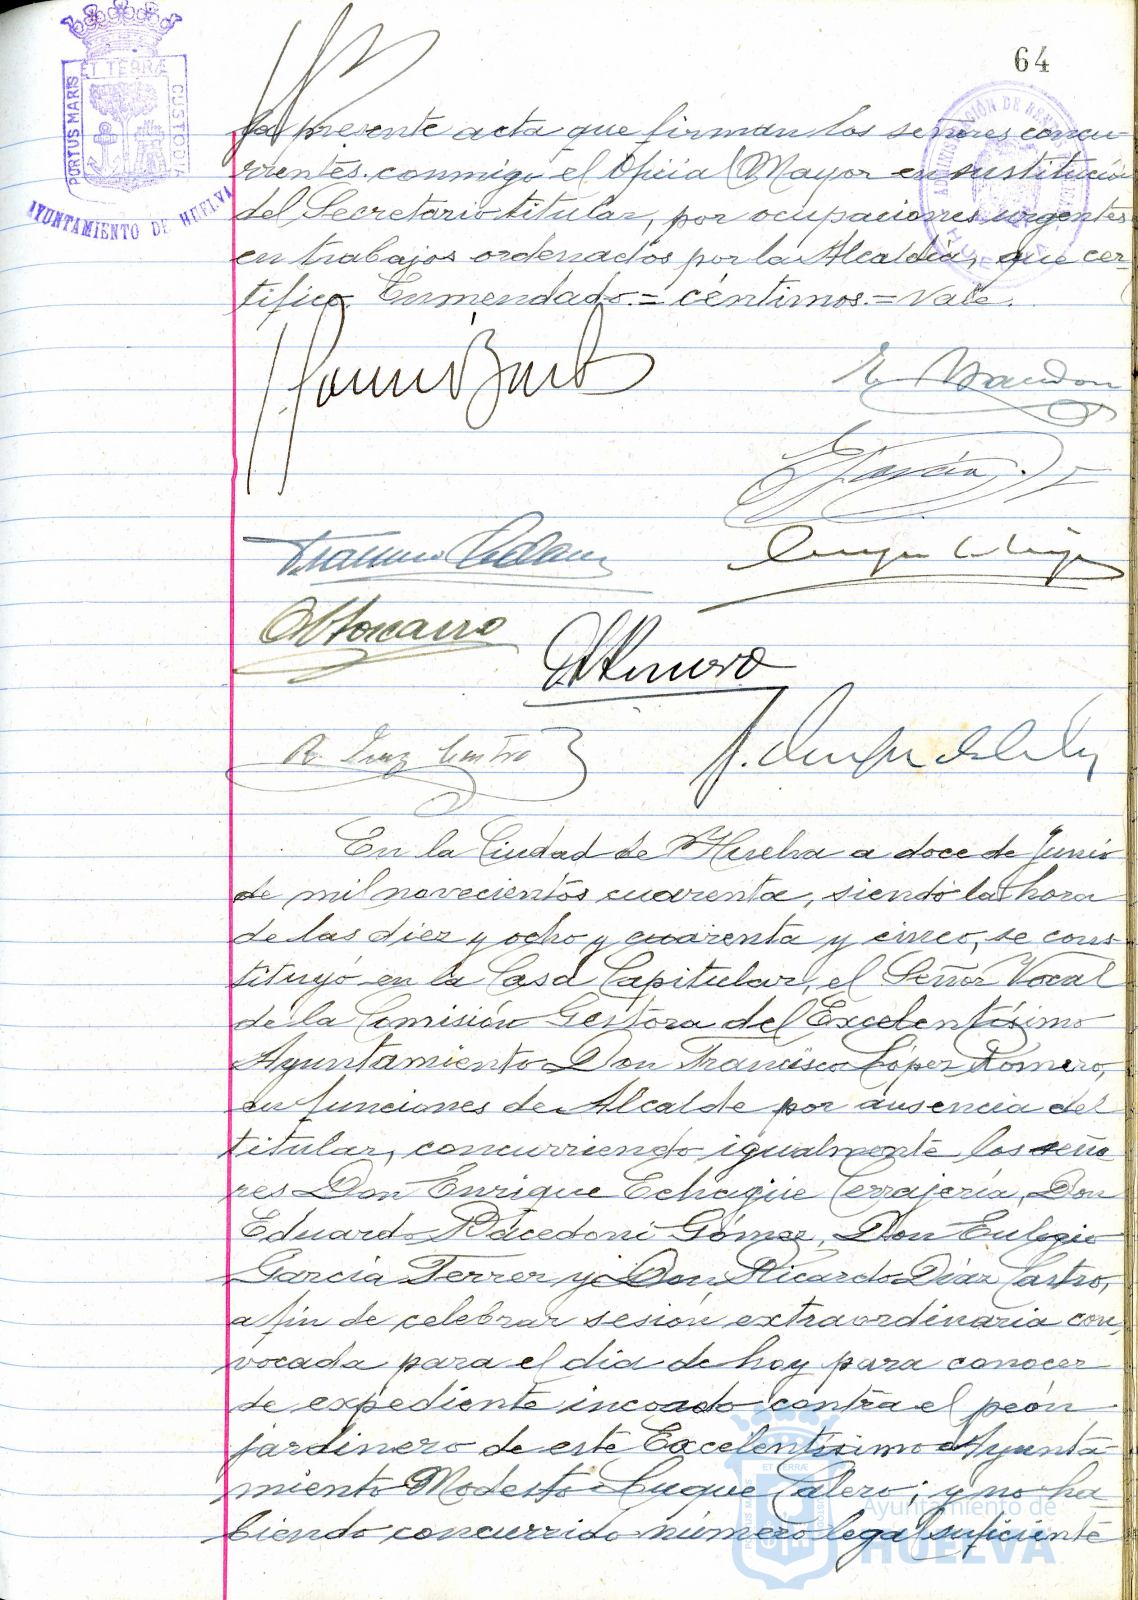 64
PORTUS MARIS ET TERRÆ CUSTODIA
AYUNTAMIENTO DE HUELVA
la presente acta que firman los señores concu-
rrentes conmigo el Oficial Mayor en sustitución
del Secretario titular, por ocupaciones urgentes
en trabajos ordenados por la Alcaldía, que cer-
tifico. Enmendado.=céntimos.=Vale.
R. Díaz Castro
En la Ciudad de Huelva a doce de Junio
de mil novecientos cuarenta, siendo la hora
de las diez y ocho y cuarenta y cinco, se cons-
tituyó en la Casa Capitular, el Señor Vocal
de la Comisión Gestora del Excelentísimo
Ayuntamiento Don Francisco López Romero,
en funciones de Alcalde por ausencia del
titular, concurriendo igualmente los seño-
res Don Enrique Echagüe Cerrajería, Don
Eduardo Macedoni Gómez, Don Eulogio
García Ferrer y Don Ricardo Díaz Castro,
a fin de celebrar sesión extraordinaria con-
vocada para el día de hoy para conocer
de expediente incoado contra el peón
jardinero de este Excelentísimo Ayunta-
miento Modesto Luque Calero; y no ha-
biendo concurrido número legal suficiente
Ayuntamiento de
HUELVA